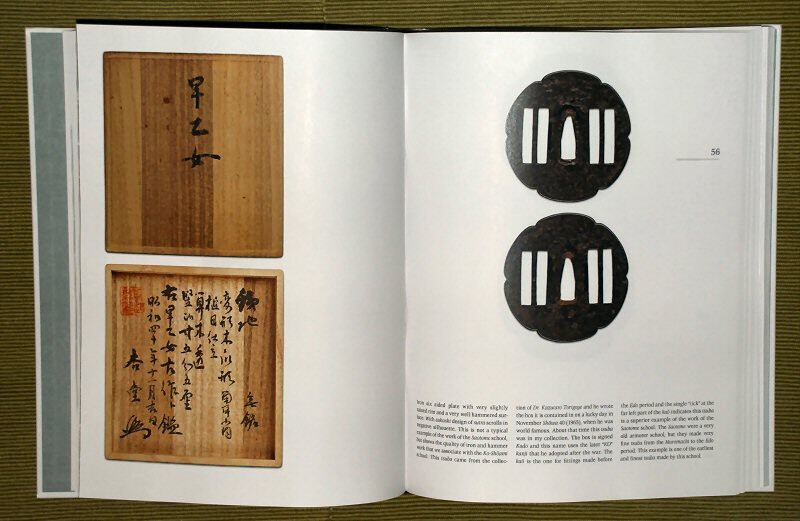 早乙女
鐵地 無銘
変形木瓜形
槌目仕立
算木透
右早乙女古作鐔
昭和四十年十一月吉日
杏堂
56
Iron six sided plate with very slightly
raised rim and a very well hammered sur-
face. With sukashi design of sutra scrolls in
negative silhouette. This is not a typical
example of the work of the Saotome school,
but shows the quality of iron and hammer
work that we associate with the Ko-Shôami
school. This tsuba came from the collec-
tion of Dr. Kazutaro Torigoye and he wrote
the box it is contained in on a lucky day in
November Shôwa 40 (1965), when he was
world famous. About that time this tsuba
was in my collection. The box is signed
Kodo and this name uses the later "KO"
kanji that he adopted after war. The
hitsu is the one for fittings made before
the Edo period and the single "tick" at the
far left part of the kaô indicates this tsuba
is a superior example of the work of the
Saotome school. The Saotome were a very
old armorer school, but they made very
fine tsuba from the Muromachi to the Edo
period. This example is one of the earliest
and finest tsuba made by this school.